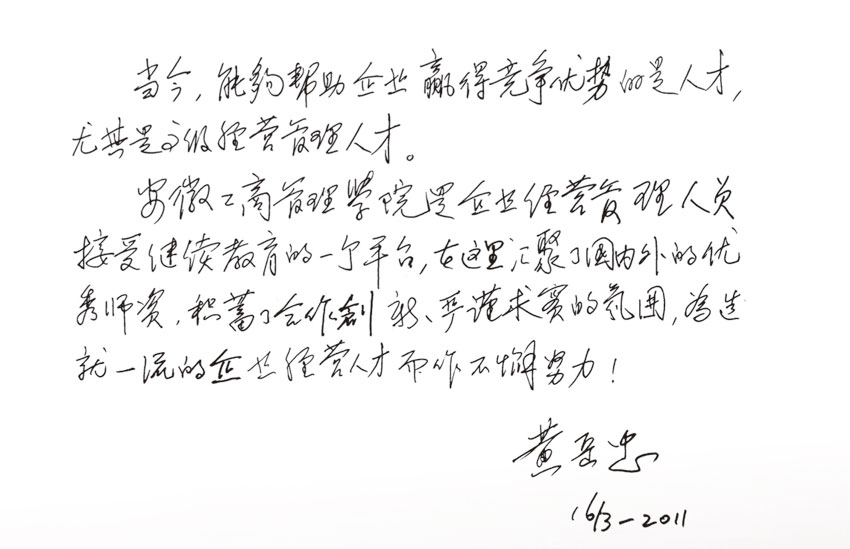 当今，能够帮助企业赢得竞争优势的是人才，
尤其是高级经营管理人才。
安徽工商管理学院是企业经营管理人员
接受继续教育的一个平台，在这里汇聚了国内外的优
秀师资，积蓄了合作创新、严谨求实的氛围，为造
就一流的企业经营人才而作不懈努力！
黄岳忠
16/3-2011